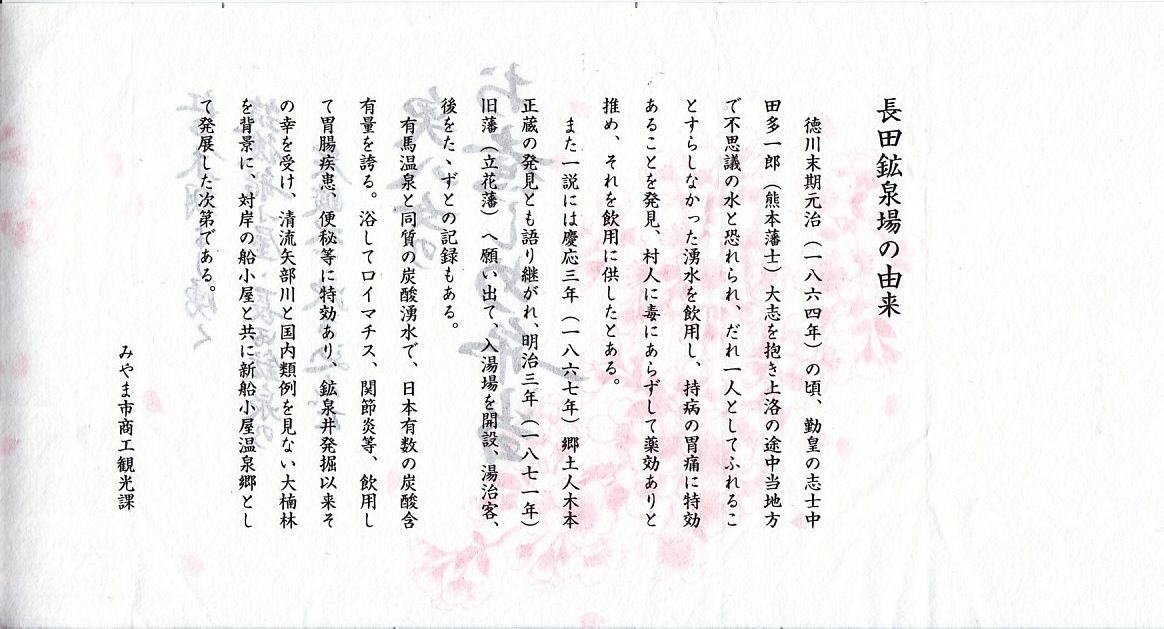 長田鉱泉場の由来
徳川末期元治（一八六四年）の頃、勤皇の志士中
田多一郎（熊本藩士）大志を抱き上洛の途中当地方
で不思議の水と恐れられ、だれ一人としてふれるこ
とすらしなかった湧水を飲用し、持病の胃痛に特効
あることを発見、村人に毒にあらずして薬効ありと
推め、それを飲用に供したとある。
また一説には慶応三年（一八六七年）郷土人木本
正蔵の発見とも語り継がれ、明治三年（一八七一年）
旧藩（立花藩）へ願い出て、入湯場を開設、湯治客、
後をたゝずとの記録もある。
有馬温泉と同質の炭酸湧水で、日本有数の炭酸含
有量を誇る。浴してロイマチス、関節炎等、飲用し
て胃腸疾患、便秘等に特効あり、鉱泉井発掘以来そ
の幸を受け、清流矢部川と国内類例を見ない大楠林
を背景に、対岸の船小屋と共に新船小屋温泉郷とし
て発展した次第である。
みやま市商工観光課